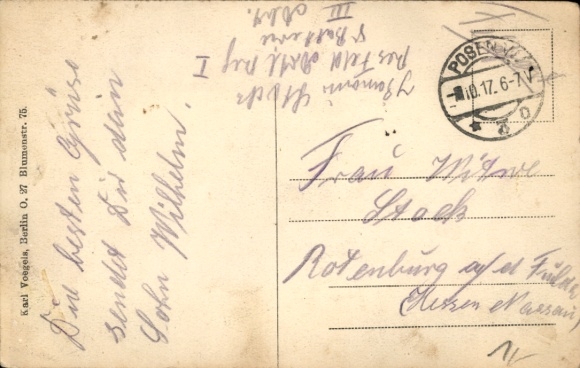 Die besten Grüße
sendet Dir dein
Sohn Wilhelm.
Stock
Res Feld Art. Reg I
5 Batterie
III Abt.
POSEN
10.17. 6-7 V
Frau Witwe
Stock
Rotenburg a/d Fulda
(Hessen Nassau)
Karl Voegels, Berlin O. 27 Blumenstr. 75.